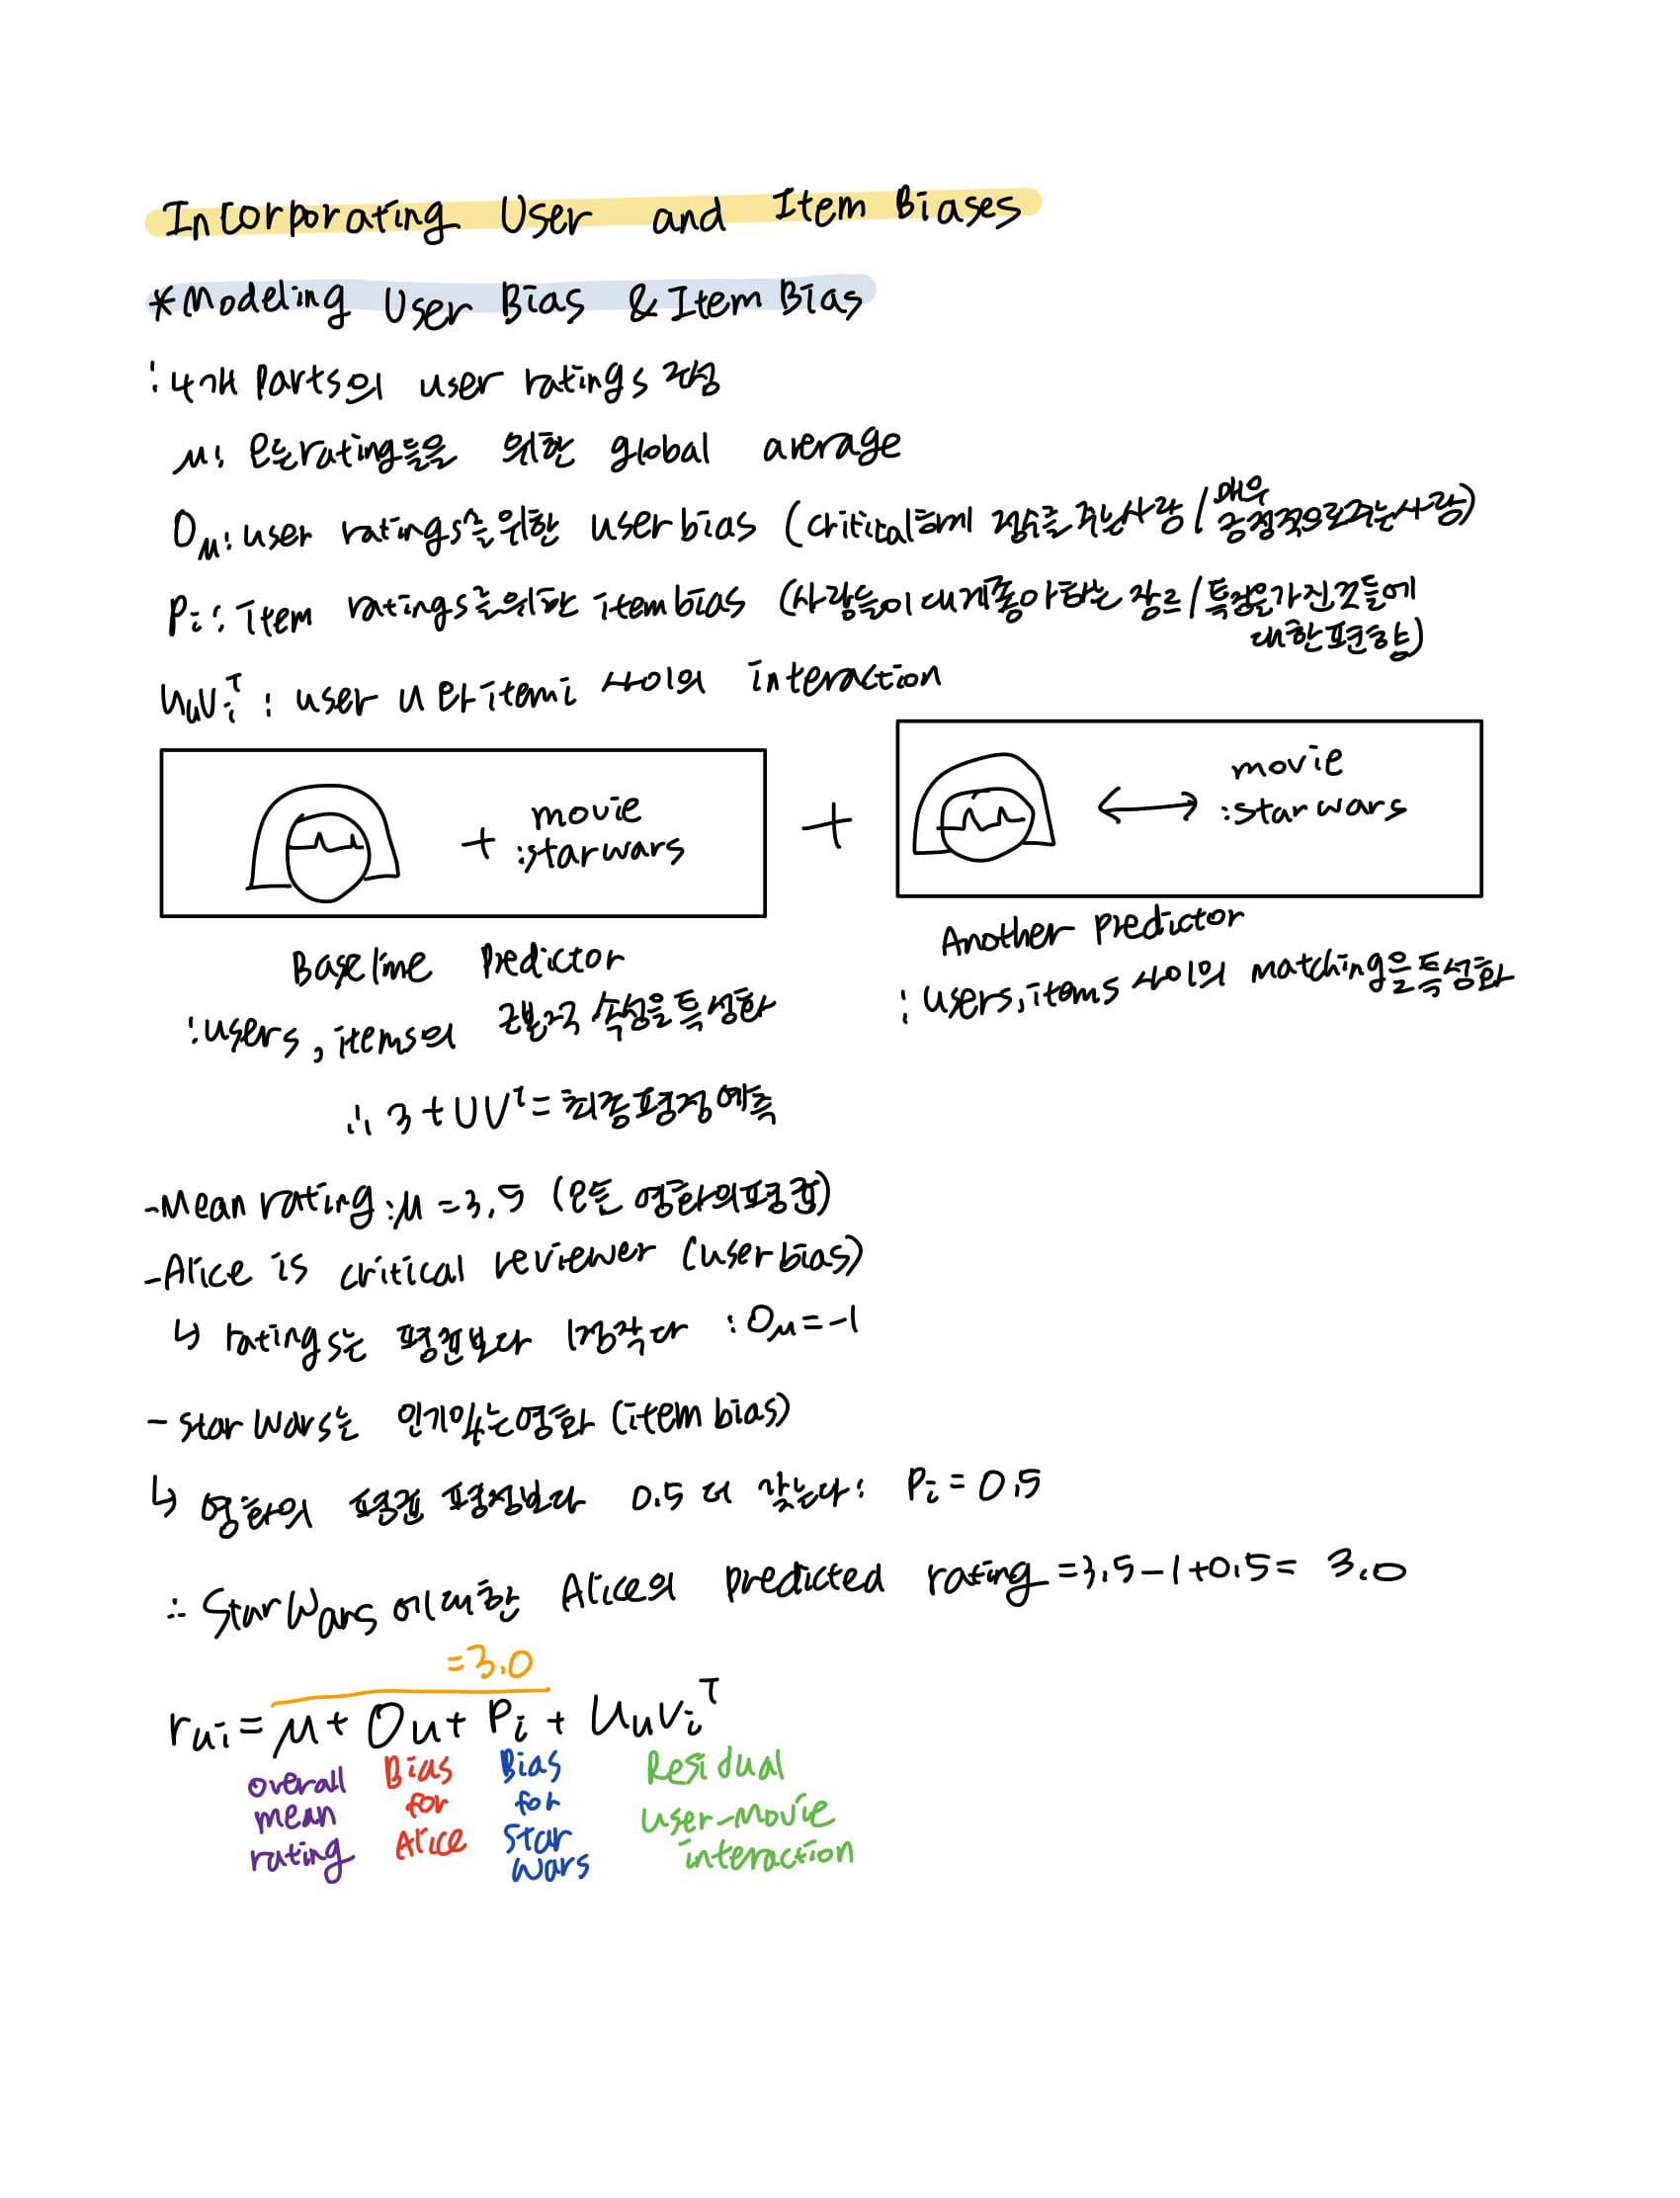 Incorporating User and Item Biases
*Modeling User Bias & Item Bias
: 4개 parts의 user ratings 구성
μ: 모든 rating들을 위한 global average
Oμ: user ratings를 위한 user bias (critical하게 점수를 주는 사람 / 매우 긍정적으로 주는 사람)
Pi: item ratings를 위한 item bias (사람들이 대게 좋아하는 장르 / 특징을 가진 것들에
대한 편향)
UuViᵀ: user u와 item i 사이의 interaction
+ movie
: star wars
+
↔ movie
: star wars
Baseline Predictor
: users, items의 근본적 속성을 특성화
Another Predictor
: users, items 사이의 matching을 특성화
∴ 3 + UVᵀ = 최종 평점 예측
-Mean rating: μ = 3.5 (모든 영화의 평균)
-Alice is critical reviewer (user bias)
↳ ratings는 평균보다 1점 작다 : Oμ = -1
- star wars는 인기있는 영화 (item bias)
↳ 영화의 평균 평점보다 0.5 더 높다: Pi = 0.5
∴ Star Wars에 대한 Alice의 predicted rating = 3.5 - 1 + 0.5 = 3.0
= 3.0
rui = μ + Ou + Pi + Uuviᵀ
overall mean rating
Bias for Alice
Bias for Star Wars
Residual user-movie interaction